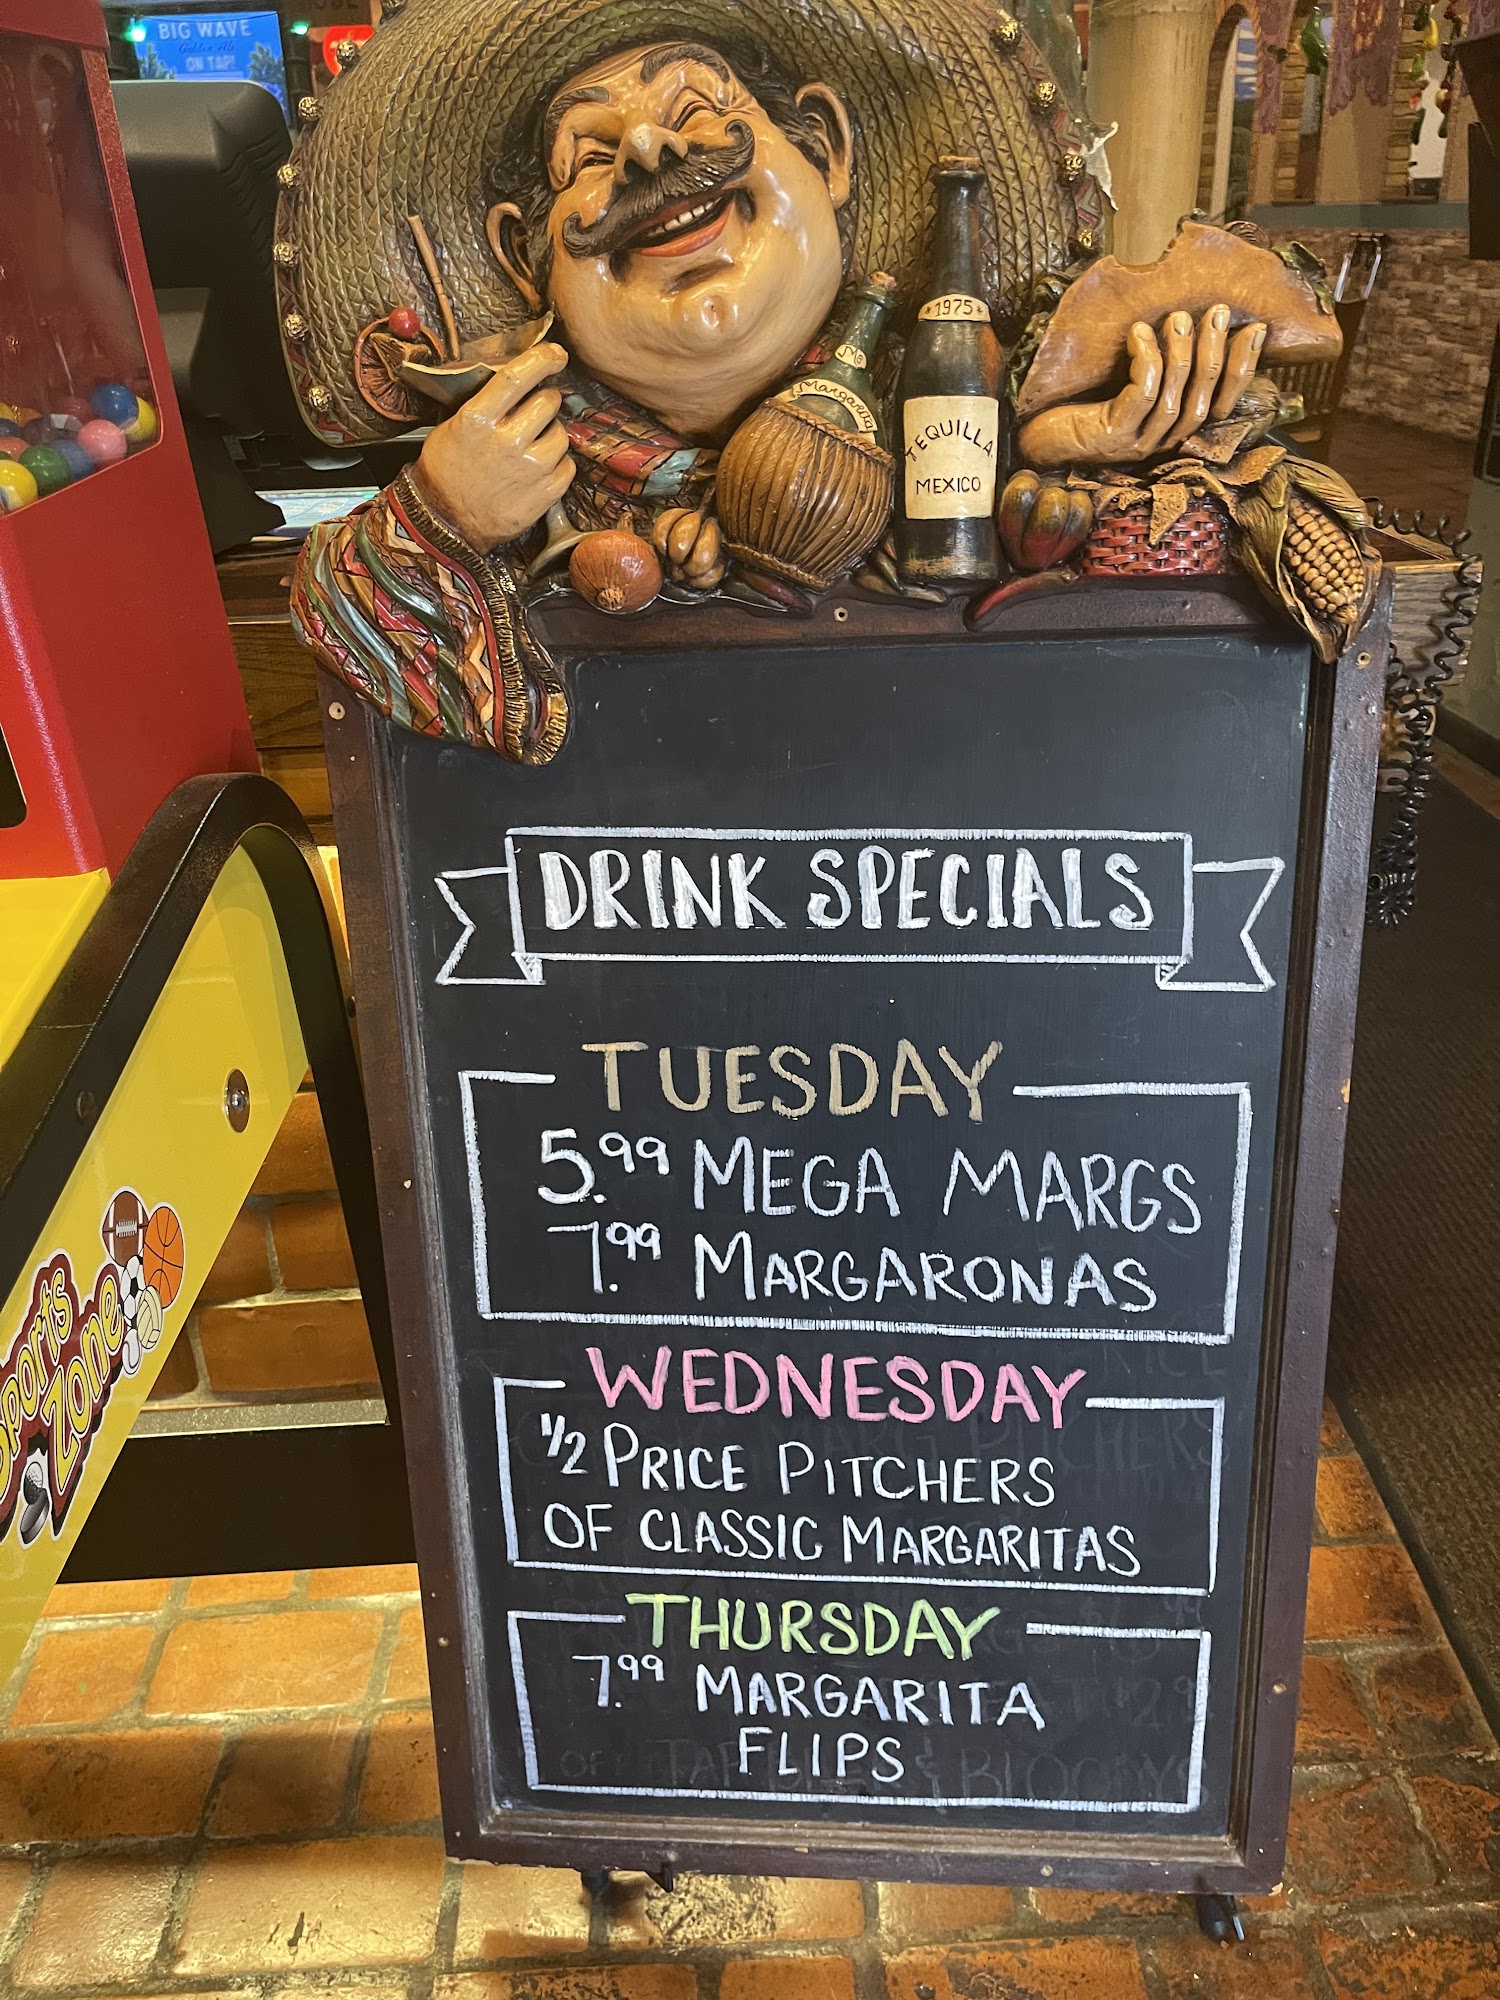 BIG WAVE
Golden Ale
ON TAP!
1975
Margarita
TEQUILLA
MEXICO
DRINK SPECIALS
TUESDAY
5.99 MEGA MARGS
7.99 MARGARONAS
WEDNESDAY
1/2 PRICE PITCHERS
OF CLASSIC MARGARITAS
THURSDAY
7.99 MARGARITA
FLIPS
Sports
Zone